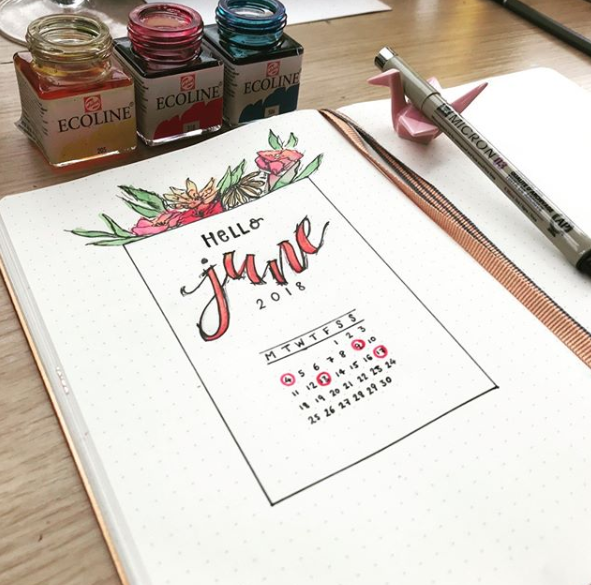 ECOLINE
ECOLINE
ECOLINE
MICRON
HELLO
june
2018
M T W T F S S
1 2 3
4 5 6 7 8 9 10
11 12 13 14 15 16 17
18 19 20 21 22 23 24
25 26 27 28 29 30